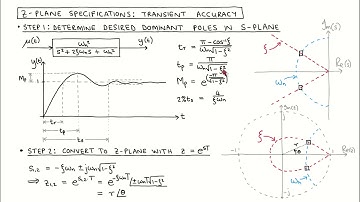 Z-PLANE SPECIFICATIONS: TRANSIENT ACCURACY
• STEP 1: DETERMINE DESIRED DOMINANT POLES IN S-PLANE
u(s)
ωn²
s² + 2ξωns + ωn²
y(s)
y(t)
Mp
1
tr
tp
ts
t
tr = π - cos⁻¹ξ / ωn√1-ξ²
tp = π / ωn√1-ξ²
Mp = e^(-πξ/√1-ξ²)
2% ts = 4 / ξωn
Im(s)
ξ
Re(s)
ωn
• STEP 2: CONVERT TO Z-PLANE WITH z = e^sT
s1,2 = -ξωn ± jωn√1-ξ²
⇒ z1,2 = e^(s1,2 T) = e^(-ξωnT) /±ωnT√1-ξ²
= r /θ
Im(s)
j
ξ
r
θ
Re(s)
ωn
-j